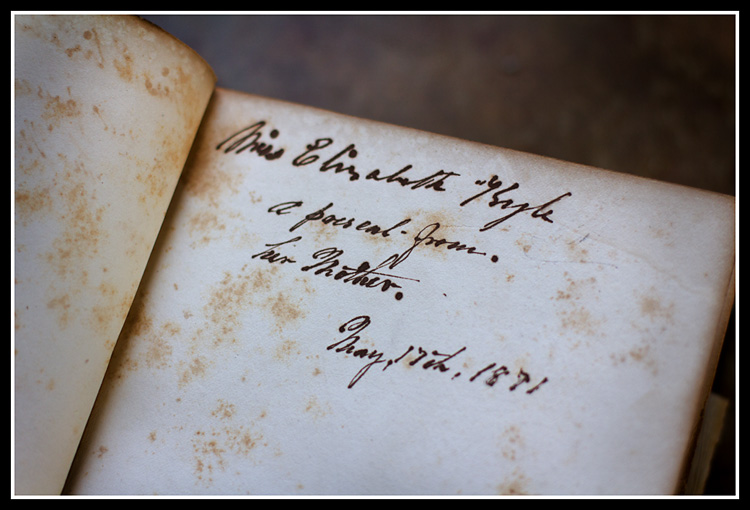 Miss Elizabeth Bryle
a preseat from.
her Mother.
May, 17th, 1871